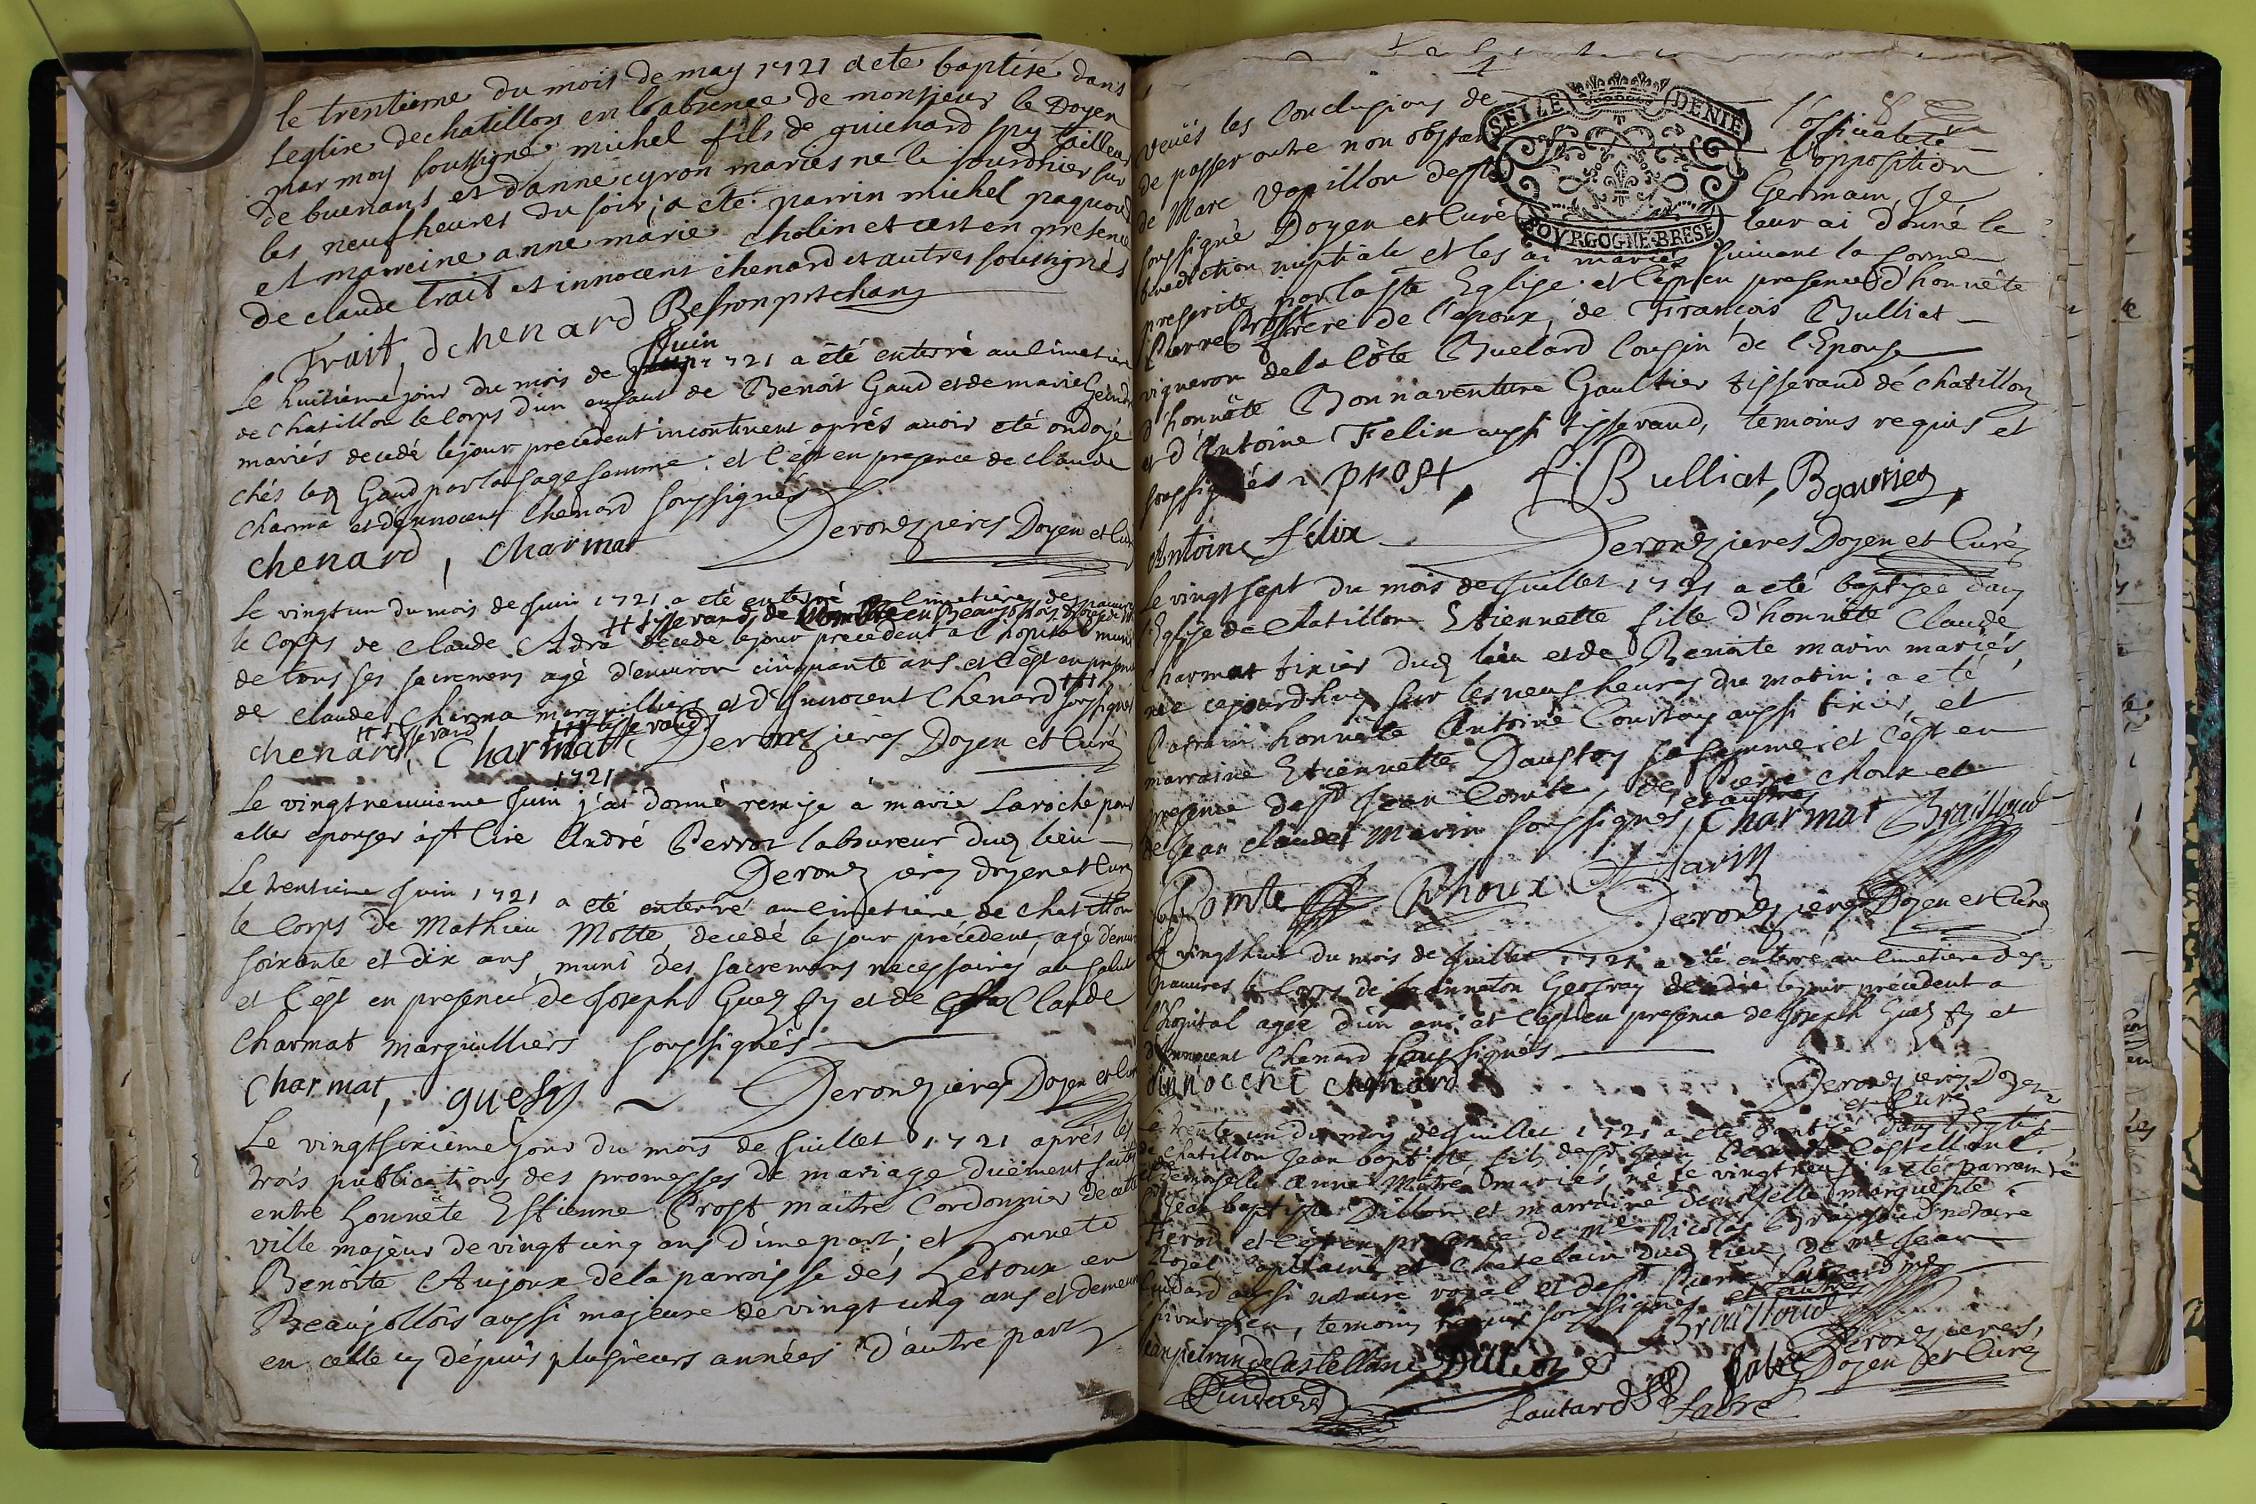 le trentième du mois de may 1721 a eté baptisé dans
leglise de chatillon en l'absence de monsieur le Doyen
par moy soussigné, michel fils de guichard spy tailleur
de buenans et d'anne cyron mariés né le jourdhier sur
les neuf heures du soir; a eté parrin michel paquod
et marreine anne marie cholin et cest en presence
de claude trait et innocent chenard et autres soussignés
Trait, Ichenard
Le huitiéme jour du mois de Juin 1721 a été enterré au cimetiere
de Chatillon le Corps d'un enfant de Benoit Gaud et de marie
mariés decedé le jour precedent incontinent aprés avoir eté ondoyé
chés led Gaud par la sage femme: et c'est en presence de claude
Charma et d'innocent Chenard soussignés
chenard, Charmat Deronzieres Doyen et Curé
Le vingtun du mois de Juin 1721 a eté enterré cimetiere des pauvres
tisserand de en Beaujolois
le Corps de Claude Adra decede le jour precedent a l'hopital muni
de tous ses sacremens agé d'environ cinquante ans et c'est en presence
de claude Charma marguilliers et d'Innocent Chenard soussignés
tisserand tisserand
chenard, Charmat Deronzieres Doyen et Curé
1721
Le vingtneuvieme Juin j'ai donné remise a marie Laroche pour
aller epouser à st Cire André Perroz laboureur dud lieu
Deronzieres doyen et Curé
Le trentieme Juin 1721 a eté enterré au cimetière de chatillon
le Corps de Mathieu Motte decedé le jour précédent, agé d'environ
soixante et dix ans, muni des sacremens necessaires au salut
et c'est en presence de Joseph Guez fy et de Claude
Charmat Marguilliers soussignés
Charmat, guefy Deronzieres Doyen et Curé
Le vingtsixieme jour du mois de Juillet 1721 aprés les
trois publications des promesses de mariage duement faites
entre honnête Estienne Prost maître Cordonnier de cette
ville majeur de vingt cinq ans d'une part; et honnete
Benôite Aujoux de la parroisse dés Hetoux en
Beaujollois aussi majeure de vingt cinq ans et demeurant
en cette ville depuis plusieurs années d'autre part
veuës les Conclusions de l'officialité
de passer outre non obstant l'opposition
de Marc Vapillon de st Germain, Je
soussigné Doyen et Curé leur ai donné la
benediction nuptiale et les ai mariés suivant la forme
prescrite par la ste Eglise. et c'est en presence d'honnête
Pierre Prost frere de l'epoux, de François Bulliat
vigneron de la Côte Buelard Cousin de l'Epouse
d'honnête Bonnaventure Gaultier tisserand de chatillon
et d'Antoine Felix aussi tisserand, temoins requis et
soussignés prost, f. Bulliat, Bgautier,
Antoine félix Deronzieres Doyen et Curé
Le vingt sept du mois de Juillet 1721 a eté baptisée dans
l'Eglise de Chatillon Etiennette fille d'honnête Claude
Charmat tixier dud lieu et de Benoite marin mariés,
née cejourd'huy sur les neuf heures du matin: a eté
Parrain honnête Antoine Courtoy aussi tixier, et
marraine Etiennette Daustoy sa femme: et c'est en
presence de sr Jean Comte, de Pierre Choux et
de Jean Claude Marin soussignés, et autres Charmat Brailloud
Comte Choux Marin
Deronzieres Doyen et Curé
Le vingthuit du mois de Juillet 1721 a eté enterré au cimetiere des
pauvres le Corps de Geofray decedée le jour précédent a
l'hopital agée d'un ans et c'est en presence de Joseph Guez fy et
d'Innocent Chenard soussignés
dinnocent chenard Deronzieres Doyen
et Curé
Le trente un du mois de Juillet 1721 a eté baptisé dans l'Eglise
de Chatillon Jean baptiste fils de sr Jean de Castellane
et de Demoiselle Anne mariés, né le vingtneuf: a eté parrain
Jean baptiste Dillion et marraine demoiselle marguerite
et c'est en presence de me Nicolas Brailloud notaire
Royal Capitaine et Chatelain dud lieu, de me Jean
Cuidard aussi notaire royal et de sr Pierre Lautard
chirurgien, temoins requis soussignés et autres
Brailloud
de Castellane Dillion fabre Deronzieres,
Doyen et Curé
Cuidard Lautard fabre
SEIZE DENIE
BOVRGOGNE·BRESE